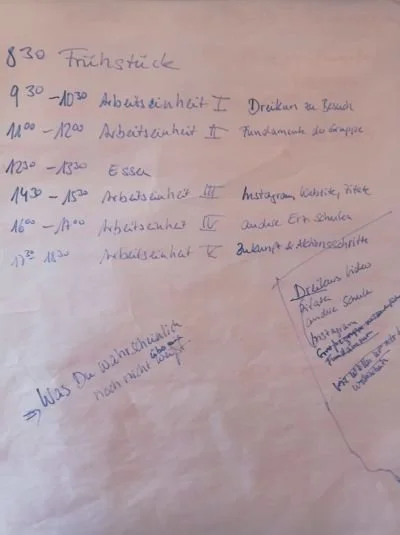 8 30 Frühstück
9 30 - 10 30 Arbeitseinheit I Dreikurs zu Besuch
11 00 - 12 00 Arbeitseinheit II Fundamente der Gruppe
12 30 - 13 30 Essen
14 30 - 15 30 Arbeitseinheit III Instagram, Website, Zitate
16 00 - 17 00 Arbeitseinheit IV andere Erz. schulen
17 30 18 30 Arbeitseinheit V Zukunft & Aktionsschritte
Dreikurs Video
Zitate
andere Schulen
Instagram
Fundamente
⇒ Was Du wahrscheinlich
noch nicht